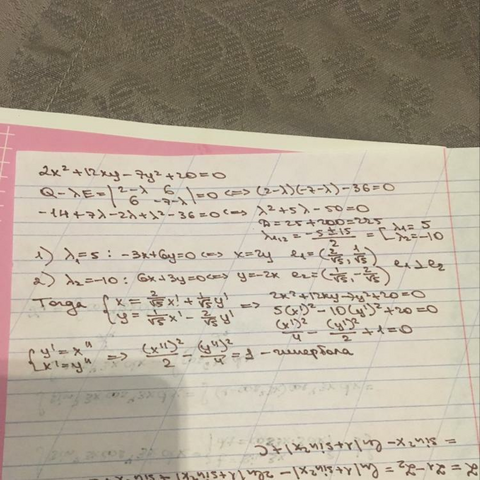 2x² + 12xy - 7y² + 20 = 0
Q - λE = |2-λ 6; 6 -7-λ| = 0 <=> (2-λ)(-7-λ) - 36 = 0
-14 + 7λ - 2λ + λ² - 36 = 0 <=> λ² + 5λ - 50 = 0
D = 25 + 200 = 225
λ₁,₂ = (-5 ± 15)/2 = [λ₁ = 5; λ₂ = -10
1) λ = 5 : -3x + 6y = 0 <=> x = 2y e₁ = (2/√5, 1/√5)
2) λ₂ = -10 : 6x + 3y = 0 <=> y = -2x e₂ = (1/√5, -2/√5) e₁ ⊥ e₂
Тогда {x = 2/√5 x' + 1/√5 y'; y = 1/√5 x' - 2/√5 y' => 2x² + 12xy - 7y² + 20 = 0
5(x')² - 10(y')² + 20 = 0
(x')²/4 - (y')²/2 + 1 = 0
{y' = x''; x' = y'' => (x'')²/2 - (y'')²/4 = 1 - гипербола
= sin²x - ln|1+sin²x| + C